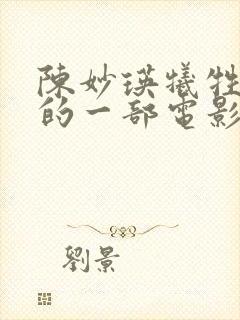 陳妙瑛犧牲
的一部電影
劉景